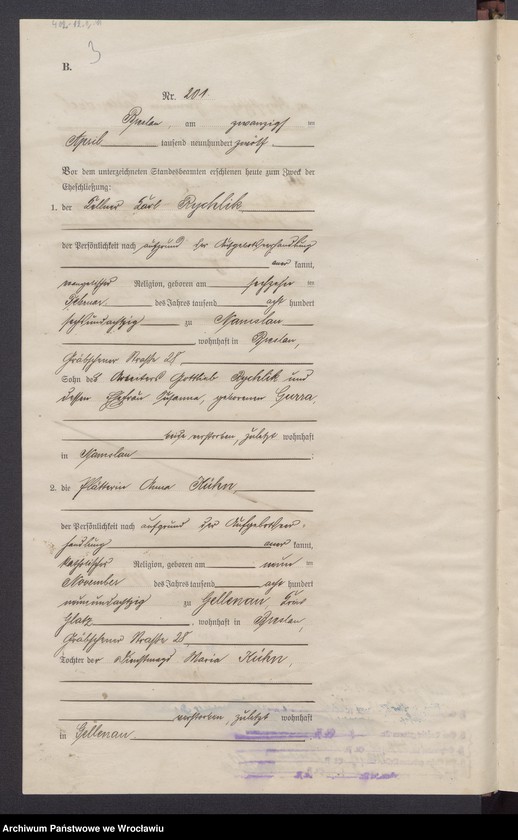 3
B.
Nr. 201
Breslau, am zwanzigs ten
April tausend neunhundert zwölf
Vor dem unterzeichneten Standesbeamten erschienen heute zum Zweck der
Eheschließung:
1. der Kellner Karl Rychlik
der Persönlichkeit nach aufgrund der Aufgebotsverhandlung
aner kannt,
evangelischer Religion, geboren am sechzehn ten
Februar des Jahres tausend acht hundert
sechsundachtzig zu Namslau
, wohnhaft in Breslau,
Gräbschener Straße 28,
Sohn des Arbeiters Gottlieb Rychlik und
dessen Ehefrau Susanna, geborenen Gurra,
beide verstorben, zuletzt wohnhaft
in Namslau ;
2. die Plätterin Anna Kühn,
der Persönlichkeit nach aufgrund der Aufgebotsver-
handlung aner kannt,
katholischer Religion, geboren am neun ten
November des Jahres tausend acht hundert
neunundachtzig zu Gellenau, Kreis
Glatz , wohnhaft in Breslau,
Gräbschener Straße 28,
Tochter der Dienstmagd Maria Kühn,
verstorben, zuletzt wohnhaft
in Gellenau .
Archiwum Państwowe we Wrocławiu